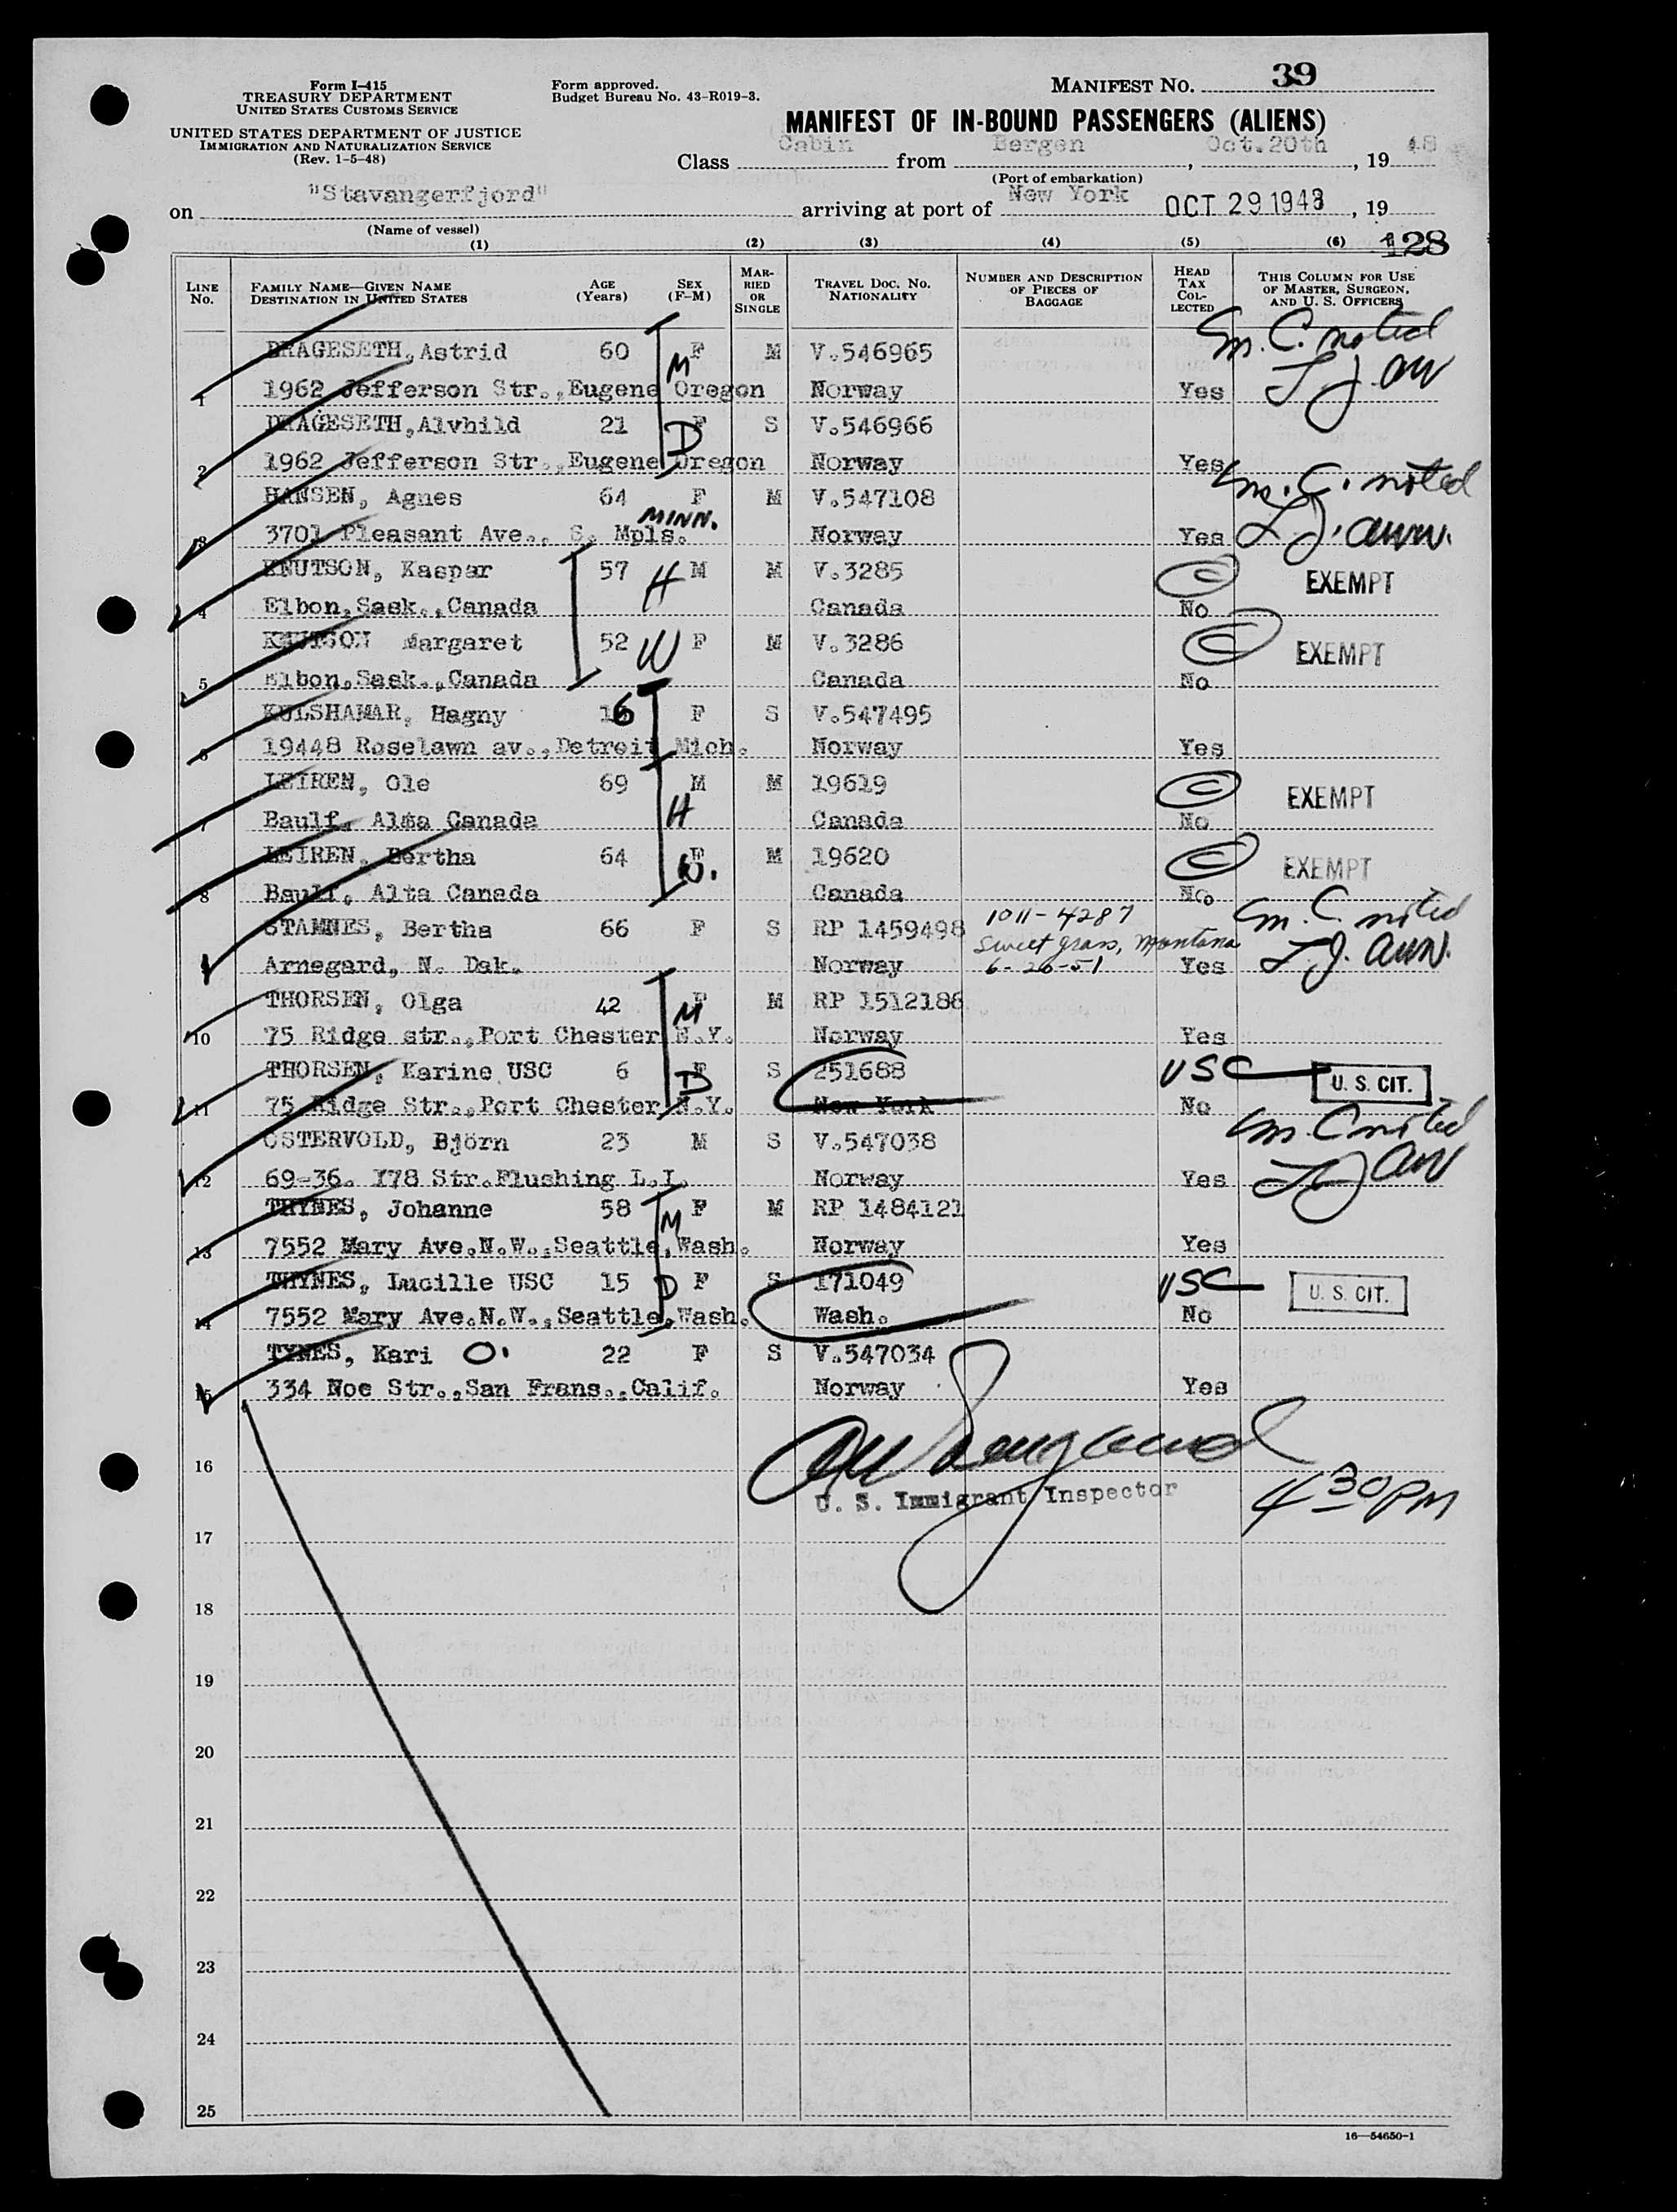 Form I-415
TREASURY DEPARTMENT
UNITED STATES CUSTOMS SERVICE
UNITED STATES DEPARTMENT OF JUSTICE
IMMIGRATION AND NATURALIZATION SERVICE
(Rev. 1-5-48)
Form approved.
Budget Bureau No. 43-R019-3.
MANIFEST NO. 39
MANIFEST OF IN-BOUND PASSENGERS (ALIENS)
Class Cabin from Bergen, Oct.20th, 19 48
(Port of embarkation)
on "Stavangerfjord" arriving at port of New York OCT 29 1948, 19
(Name of vessel)
(1) (2) (3) (4) (5) (6) 128
LINE NO. FAMILY NAME—GIVEN NAME DESTINATION IN UNITED STATES AGE (Years) SEX (F-M) MARRIED OR SINGLE TRAVEL DOC. NO. NATIONALITY NUMBER AND DESCRIPTION OF PIECES OF BAGGAGE HEAD TAX COLLECTED THIS COLUMN FOR USE OF MASTER, SURGEON, AND U. S. OFFICERS
DRAGESETH, Astrid 60 F M M V.546965 M.C. noted
1 1962 Jefferson Str., Eugene Oregon Norway Yes
DRAGESETH, Alvhild 21 F D S V.546966
2 1962 Jefferson Str., Eugene Oregon Norway Yes
HANSEN, Agnes 64 F M V.547108 M.C. noted
3 3701 Pleasant Ave., S. Mpls. MINN. Norway Yes
KNUTSON, Kaspar 57 H M M V.3285 C EXEMPT
4 Elbon, Sask., Canada Canada No
KNUTSON Margaret 52 W F M V.3286 C EXEMPT
5 Elbon, Sask., Canada Canada No
KULSHAMAR, Hagny 16 F S V.547495
6 19448 Roselawn av., Detroit Mich. Norway Yes
LEIREN, Ole 69 M M 19619 C EXEMPT
7 Baulf, Alta Canada H Canada No
LEIREN, Bertha 64 F W. M 19620 C EXEMPT
8 Baulf, Alta Canada Canada No
STAMNES, Bertha 66 F S RP 1459498 1011-4287 M.C. noted
Sweet grass, Montana
Arnegard, N. Dak. Norway 6-26-51 Yes
THORSEN, Olga 42 F M M RP 1512186
10 75 Ridge str., Port Chester N.Y. Norway Yes
THORSEN, Karine USC 6 F D S 251688 USC U. S. CIT.
11 75 Ridge Str., Port Chester N.Y. New York No
OSTERVOLD, Björn 23 M S V.547038 M.C noted
12 69-36. 178 Str. Flushing L.I. Norway Yes
THYNES, Johanne 58 M F M RP 1484121
13 7552 Mary Ave.N.W., Seattle, Wash. Norway Yes
THYNES, Lucille USC 15 D F S 171049 USC U. S. CIT.
14 7552 Mary Ave.N.W., Seattle, Wash. Wash. No
TYNES, Kari O. 22 F S V.547034
15 334 Noe Str., San Frans., Calif. Norway Yes
16
U. S. Immigrant Inspector 4 30 PM
17
18
19
20
21
22
23
24
25
16—54650-1